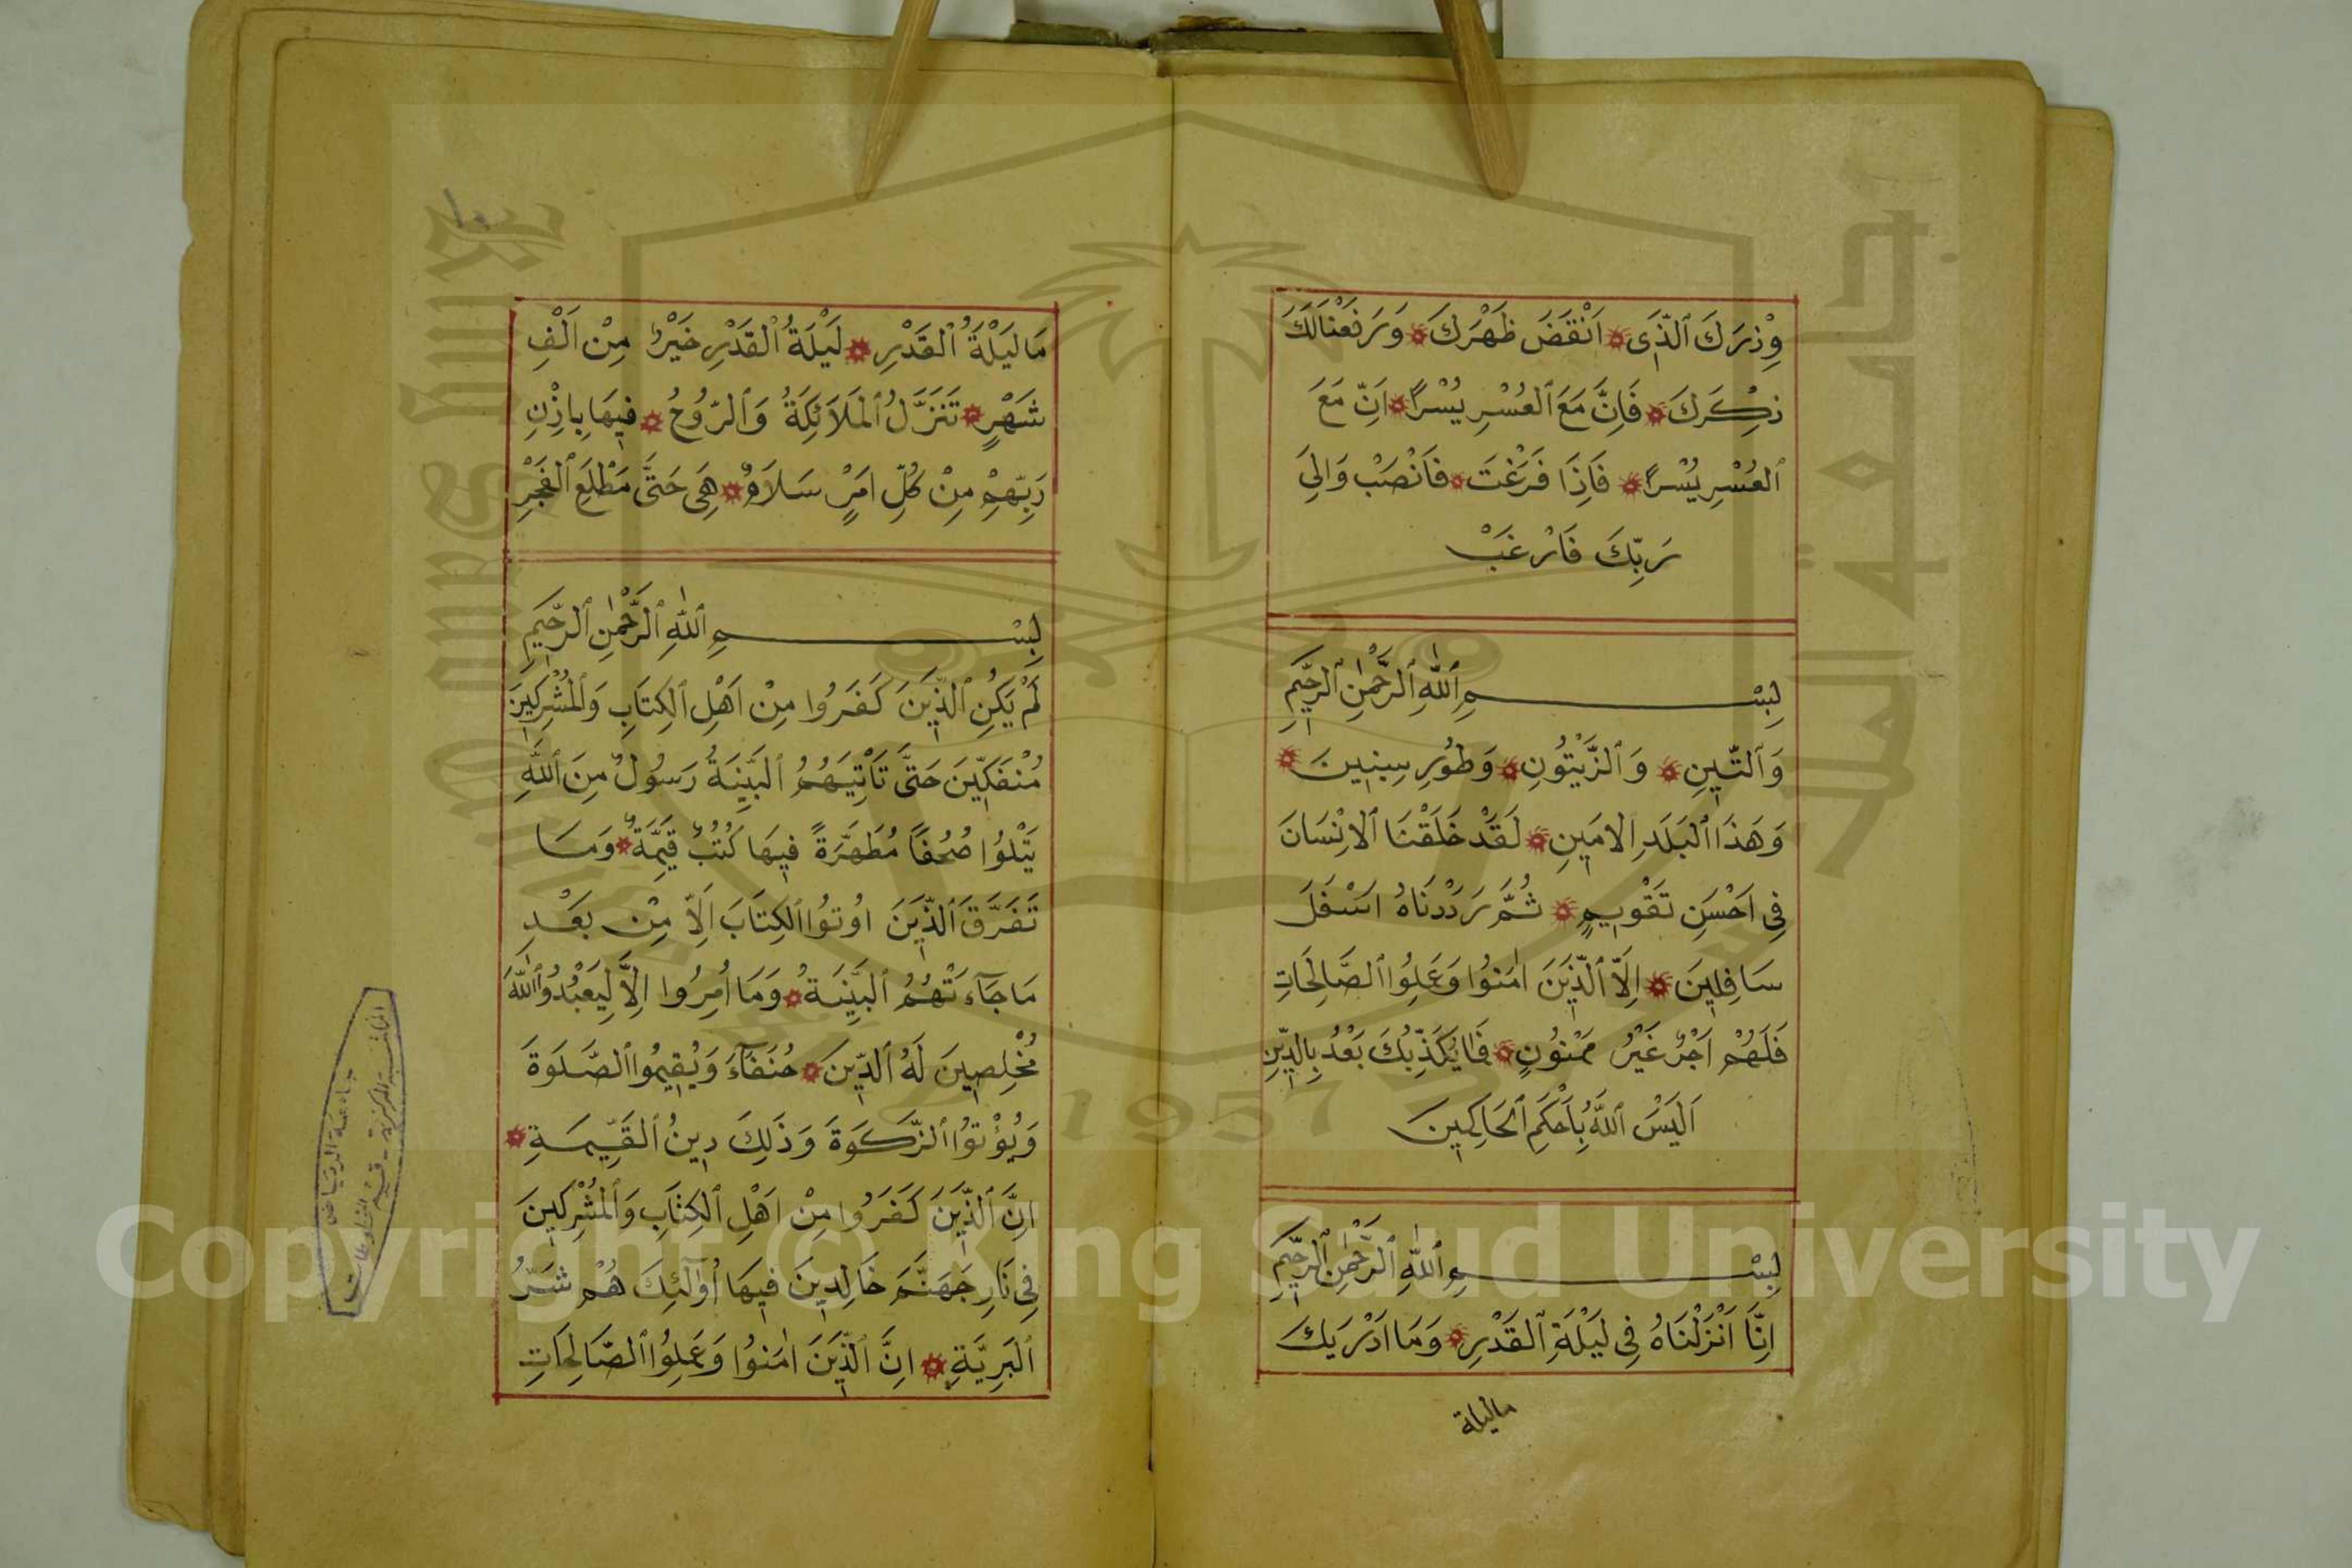 وِزْرَكَ ٱلَّذِى ۞ اَنْقَضَ ظَهْرَكَ ۞ وَرَفَعْنَالَكَ
ذِكْرَكَ ۞ فَاِنَّ مَعَ ٱلعُسْرِ يُسْرًا ۞ اِنَّ مَعَ
ٱلعُسْرِ يُسْرًا ۞ فَاِذَا فَرَغْتَ ۞ فَانْصَبْ وَالِىَ
رَبِّكَ فَارْغَبْ
بِسْمِ ٱللّٰهِ ٱلرَّحْمٰنِ ٱلرَّحِيمِ
وَٱلتِّينِ ۞ وَٱلزَّيْتُونِ ۞ وَطُورِ سِينِينَ ۞
وَهَذَا ٱلْبَلَدِ الامِينِ ۞ لَقَدْ خَلَقْنَا ٱلاِنْسَانَ
فِى اَحْسَنِ تَقْوِيمٍ ۞ ثُمَّ رَدَدْنَاهُ اسْفَلَ
سَافِلِينَ ۞ اِلّاَ ٱلَّذِينَ اٰمَنُوا وَعَمِلُوا ٱلصَّالِحَاتِ
فَلَهُمْ اَجْرٌ غَيْرُ مَمْنُونٍ ۞ فَمَا يُكَذِّبُكَ بَعْدُ بِالدِّينِ
اَلَيْسَ ٱللَّهُ بِاَحْكَمِ ٱلحَاكِمِينَ
بِسْمِ ٱللّٰهِ ٱلرَّحْمٰنِ ٱلرَّحِيمِ
اِنَّا اَنْزَلْنَاهُ فِى لَيْلَةِ ٱلقَدْرِ ۞ وَمَا ادْرَيكَ
ماليلة
١٠
مَا لَيْلَةُ ٱلْقَدْرِ ۞ لَيْلَةُ ٱلقَدْرِ خَيْرٌ مِنْ اَلْفِ
شَهْرٍ ۞ تَنَزَّلُ ٱلمَلاَئِكَةُ وَٱلرُّوحُ ۞ فِيهَا بِاِذْنِ
رَبِّهِمْ مِنْ كُلِّ امْرٍ سَلاَمٌ ۞ هِىَ حَتَّى مَطْلَعِ ٱلفَجْرِ
بِسْمِ ٱللّٰهِ ٱلرَّحْمٰنِ ٱلرَّحِيمِ
لَمْ يَكُنِ ٱلَّذِينَ كَفَرُوا مِنْ اَهْلِ ٱلكِتَابِ وَٱلمُشْرِكِينَ
مُنْفَكِّينَ حَتَّى تَاْتِيَهُمُ ٱلبَيِّنَةُ رَسُولٌ مِنَ ٱللَّهِ
يَتْلُوُا صُحُفًا مُطَهَّرَةً فِيهَا كُتُبٌ قَيِّمَةٌ ۞ وَمَا
تَفَرَّقَ ٱلَّذِينَ اوُتُوا ٱلكِتَابَ اِلاَّ مِنْ بَعْدِ
مَا جَآءَتْهُمُ ٱلبَيِّنَةُ ۞ وَمَا اُمِرُوا اِلاَّ لِيَعْبُدُوا ٱللّٰهَ
مُخْلِصِينَ لَهُ ٱلدِّينَ ۞ حُنَفَآءَ وَيُقِيمُوا ٱلصَّلَوةَ
وَيُؤْتُوا ٱلزَّكَوةَ وَذَلِكَ دِينُ ٱلقَيِّمَةِ ۞
اِنَّ ٱلَّذِينَ كَفَرُوا مِنْ اَهْلِ ٱلكِتَابِ وَٱلمُشْرِكِينَ
فِى نَارِ جَهَنَّمَ خَالِدِينَ فِيهَا اُولٰٓئِكَ هُمْ شَرُّ
ٱلبَرِيَّةِ ۞ اِنَّ ٱلَّذِينَ اٰمَنُوا وَعَمِلُوا ٱلصَّالِحَاتِ
جامعة الرياض
المكتبة المركزية - قسم المخطوطات
1957
Copyright © King Saud University